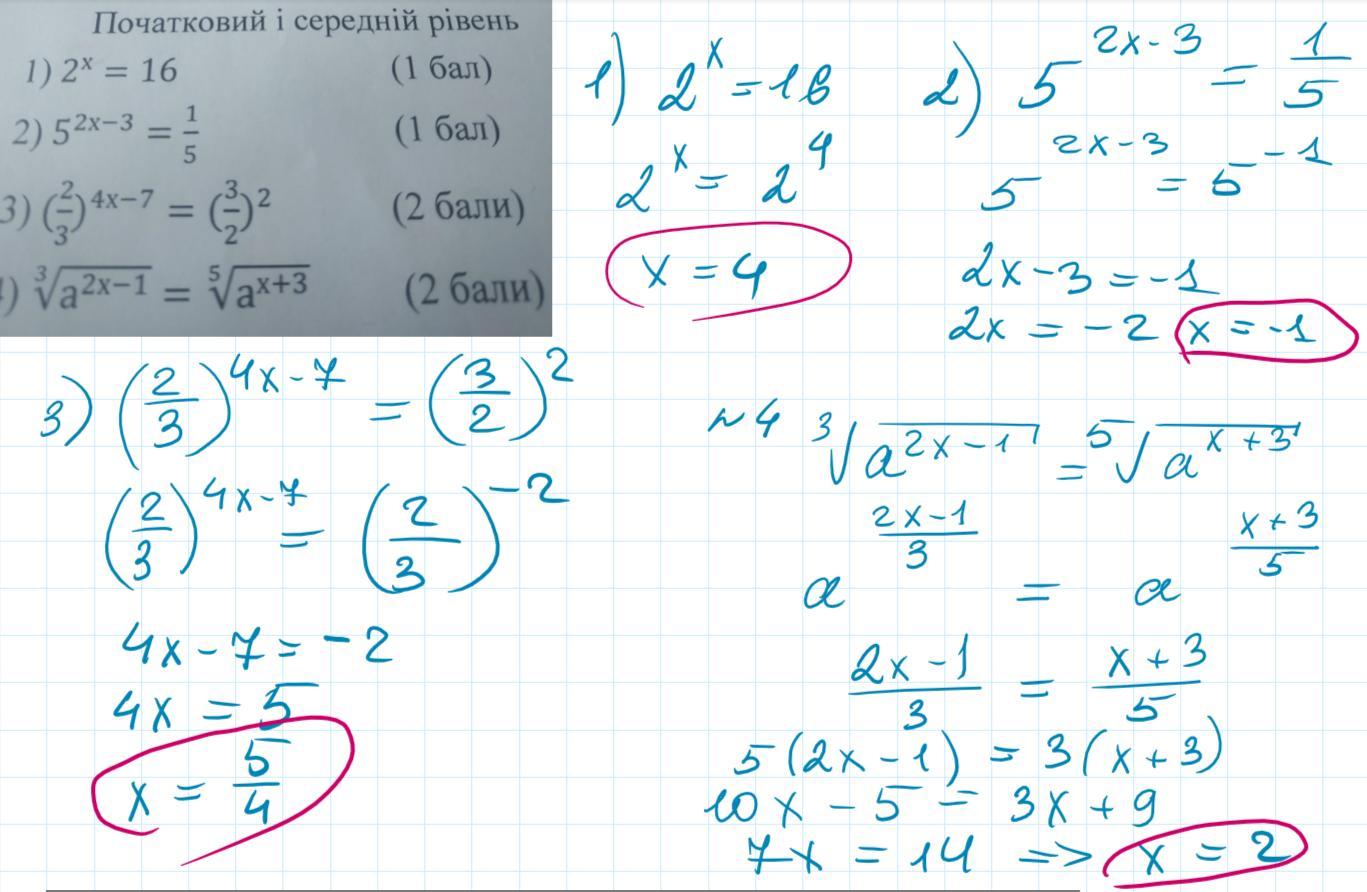 Початковий і середній рівень
1) 2^x = 16 (1 бал)
2) 5^{2x-3} = \frac{1}{5} (1 бал)
3) (\frac{2}{3})^{4x-7} = (\frac{3}{2})^2 (2 бали)
) \sqrt[3]{a^{2x-1}} = \sqrt[5]{a^{x+3}} (2 бали)
1) 2^x = 16
2^x = 2^4
x = 4
2) 5^{2x-3} = \frac{1}{5}
5^{2x-3} = 5^{-1}
2x-3 = -1
2x = -2 x = -1
3) (\frac{2}{3})^{4x-7} = (\frac{3}{2})^2
(\frac{2}{3})^{4x-7} = (\frac{2}{3})^{-2}
4x-7 = -2
4x = 5
x = \frac{5}{4}
№4 \sqrt[3]{a^{2x-1}} = \sqrt[5]{a^{x+3}}
a^{\frac{2x-1}{3}} = a^{\frac{x+3}{5}}
\frac{2x-1}{3} = \frac{x+3}{5}
5(2x-1) = 3(x+3)
10x - 5 = 3x + 9
7x = 14 => x = 2